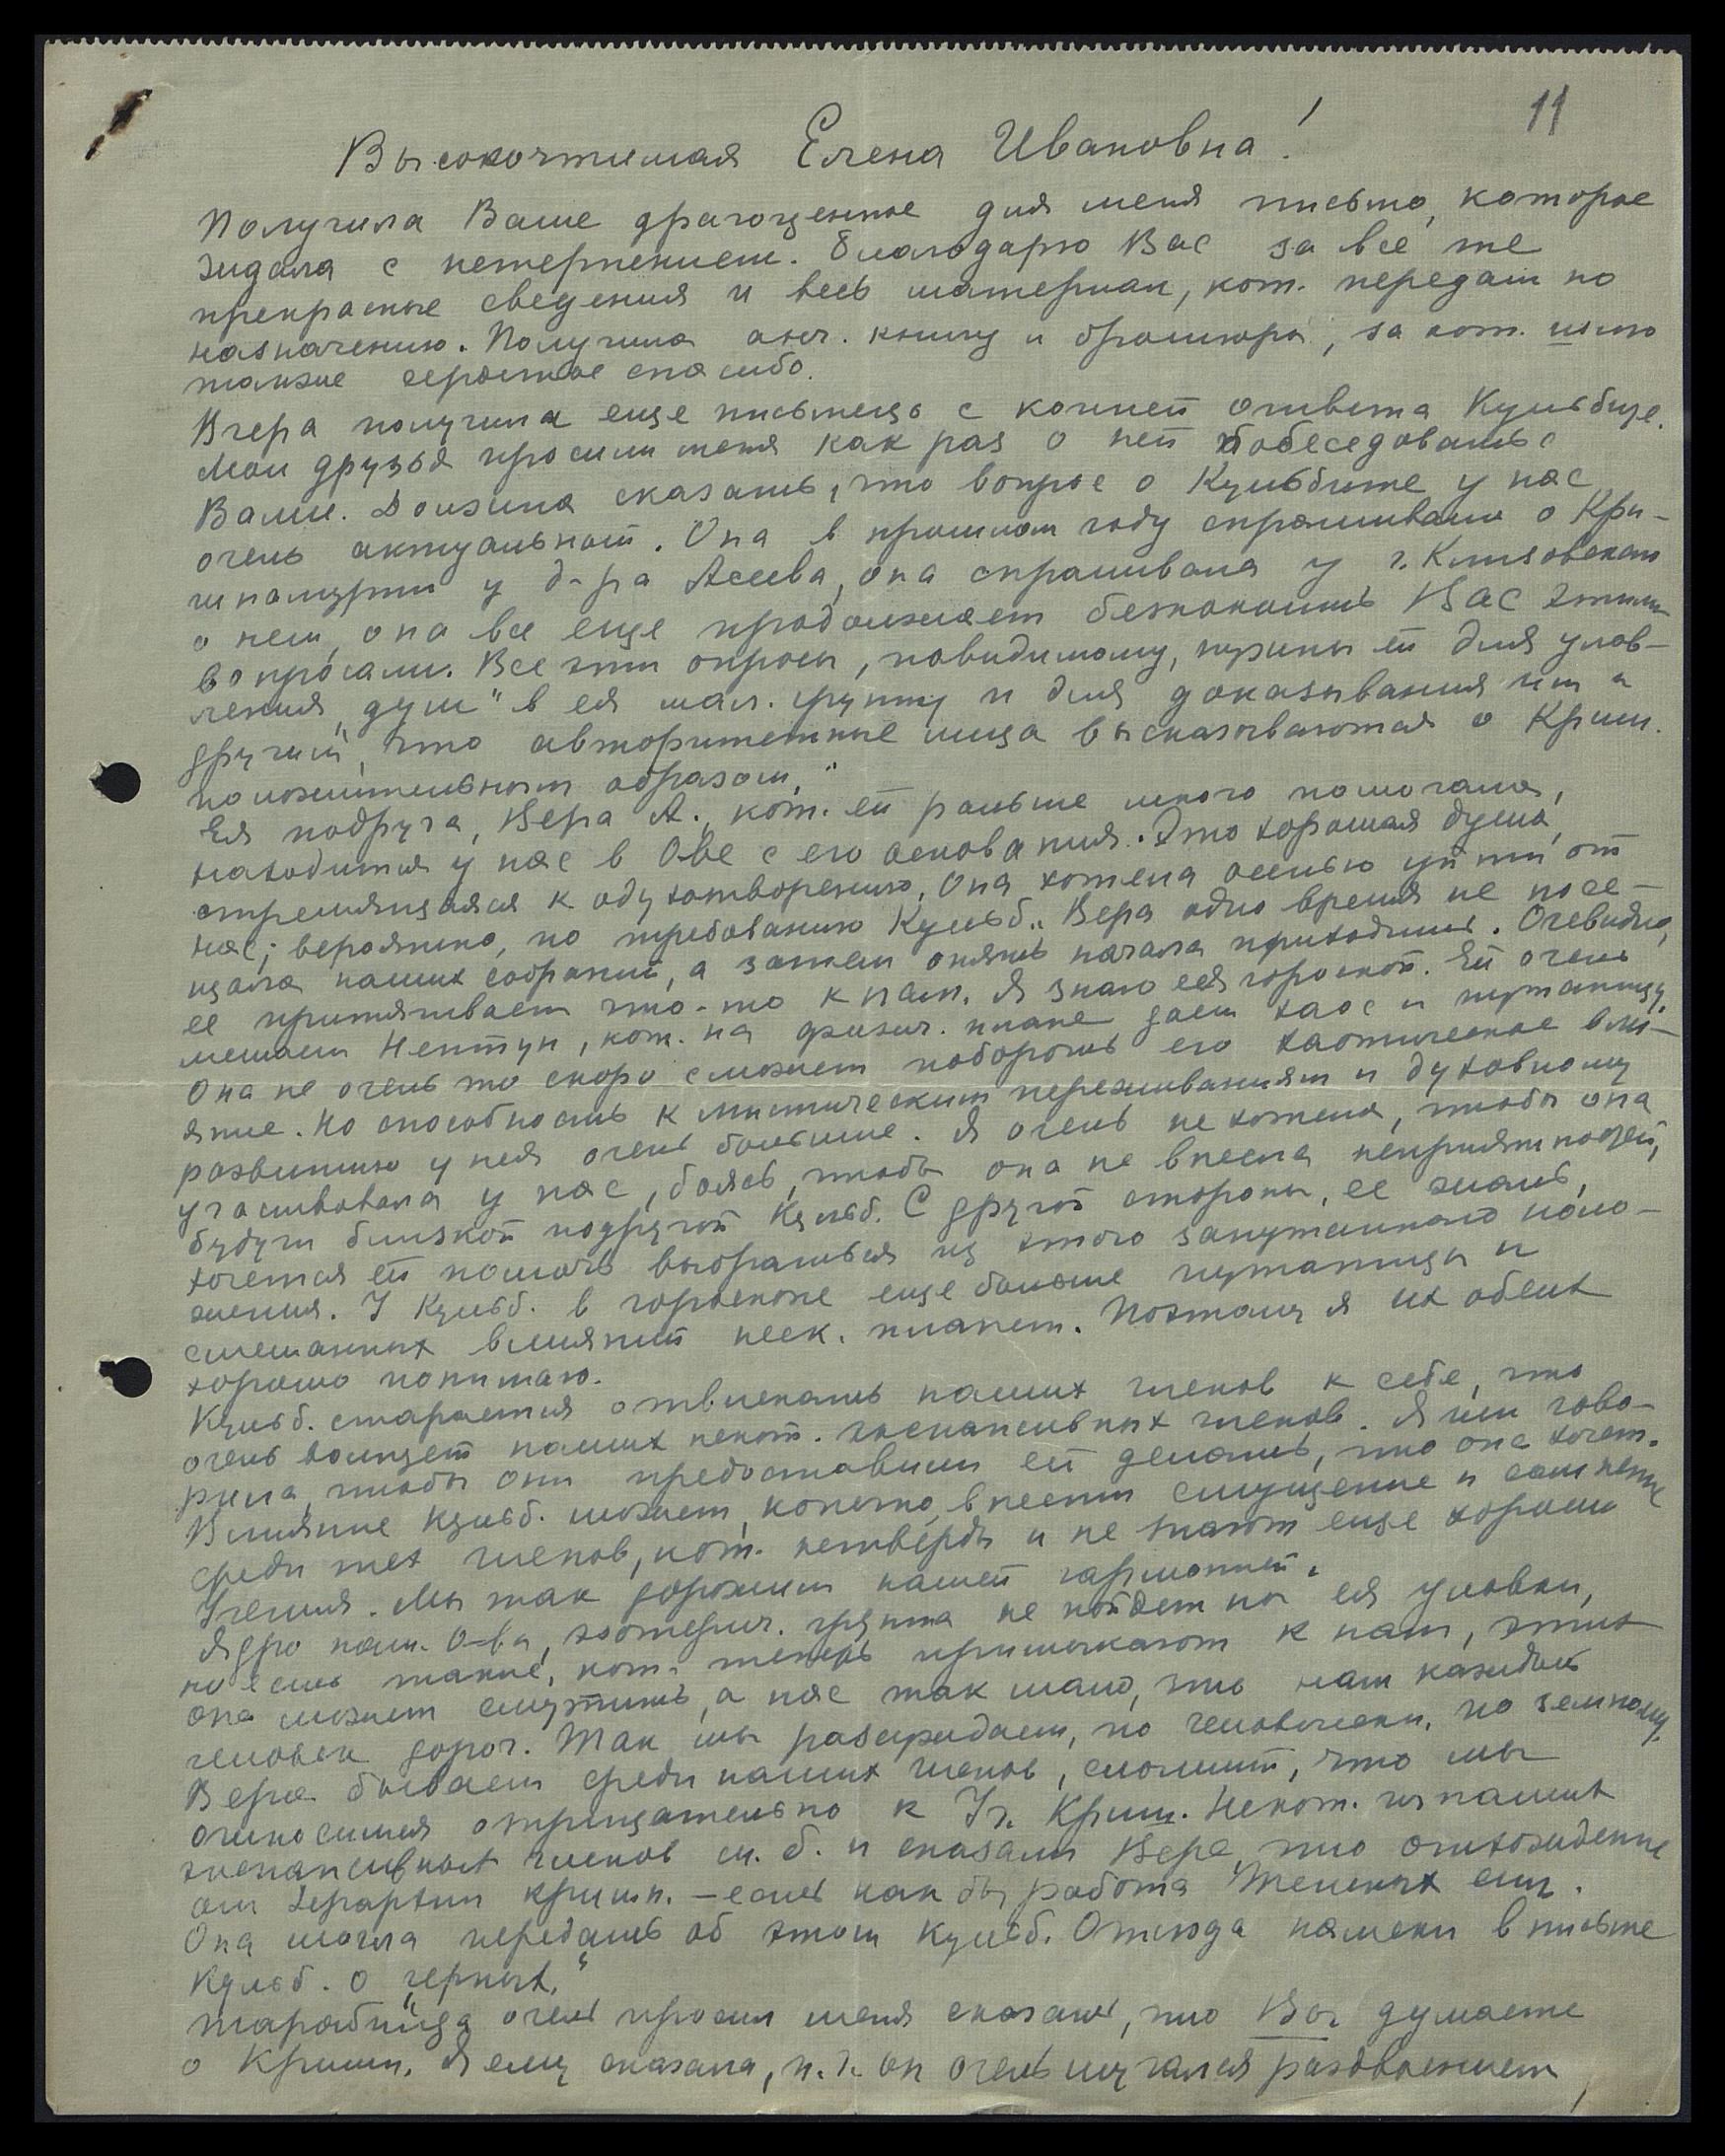 11
Высокочтимая Елена Ивановна!
Получила Ваше драгоценное для меня письмо, которое
ждала с нетерпением. Благодарю Вас за все те
прекрасные сведения и весь материал, кот. передам по
назначению. Получила англ. книгу и брошюры, за кот. шлю
также сердечное спасибо.
Вчера получила еще письмецо с копией ответа Кульбице.
Мои друзья просили меня как раз о ней побеседовать с
Вами. Должна сказать, что вопрос о Кульбите у нас
очень актуальный. Она в прошлом году спрашивала о Кри-
шнамурти у д-ра Асеева, она спрашивала у г. Клизовского
о нем, она все еще продолжает беспокоить Вас этими
вопросами. Все эти опросы, повидимому, нужны ей для улов-
ления „душ" в ея мал. группу и для доказывания им и
другим, что авторитетные лица высказываются о Криш.
положительным образом."
Ея подруга, Вера А., кот. ей раньше много помогала,
находится у нас в О-ве с его основания. Это хорошая душа,
стремящаяся к одухотворению. Она хотела осенью уйти от
нас; вероятно, по требованию Кульб.. Вера одно время не посе-
щала наших собраний, а затем опять начала приходить. Очевидно,
ее притягивает что-то к нам. Я знаю ея гороскоп. Ей очень
мешает Нептун, кот. на физич. плане дает хаос и путаницу.
Она не очень то скоро сможет побороть его хаотическое вли-
яние. Но способность к мистическим переживаниям и духовному
развитию у нея очень большие. Я очень не хотела, чтобы она
участвовала у нас, боясь, чтобы она не внесла неприятностей,
будучи близкой подругой Кульб. С другой стороны, ее жаль,
хочется ей помочь выбраться из этого запутанного поло-
жения. У Кульб. в гороскопе еще больше путаницы и
смешанных влияний неск. планет. Поэтому я их обеих
хорошо понимаю.
Кульб. старается отвлекать наших членов к себе, что
очень волнует наших некот. экспансивных членов. Я им гово-
рила, чтобы они предоставили ей делать, что она хочет.
Влияние Кульб. может, конечно, внести смущение и сомнение
среди тех членов, кот. нетвёрды и не знают еще хорошо
Учения. Мы так дорожим нашей гармонией.
Ядро наш. О-ва, эзотерич. группа не пойдет на ея уловки,
но есть такие, кот. теперь примыкают к нам, этих
она может смутить, а нас так мало, что нам каждый
человек дорог. Так мы разсуждаем, по человечески, по земному.
Вера бывает среди наших членов, слышит, что мы
относимся отрицательно к Уч. Криш. Некот. из наших
экспансивных членов м. б. и сказали Вере, что отхождение
от Иерархии Кришн. – есть как бы работа темных сил.
Она могла передать об этом Кульб. Отсюда намеки в письме
Кульб. о „черных."
очень просил меня сказать, что Вы думаете
о Кришн. Я ему сказала, п. ч. он очень мучался раздвоением